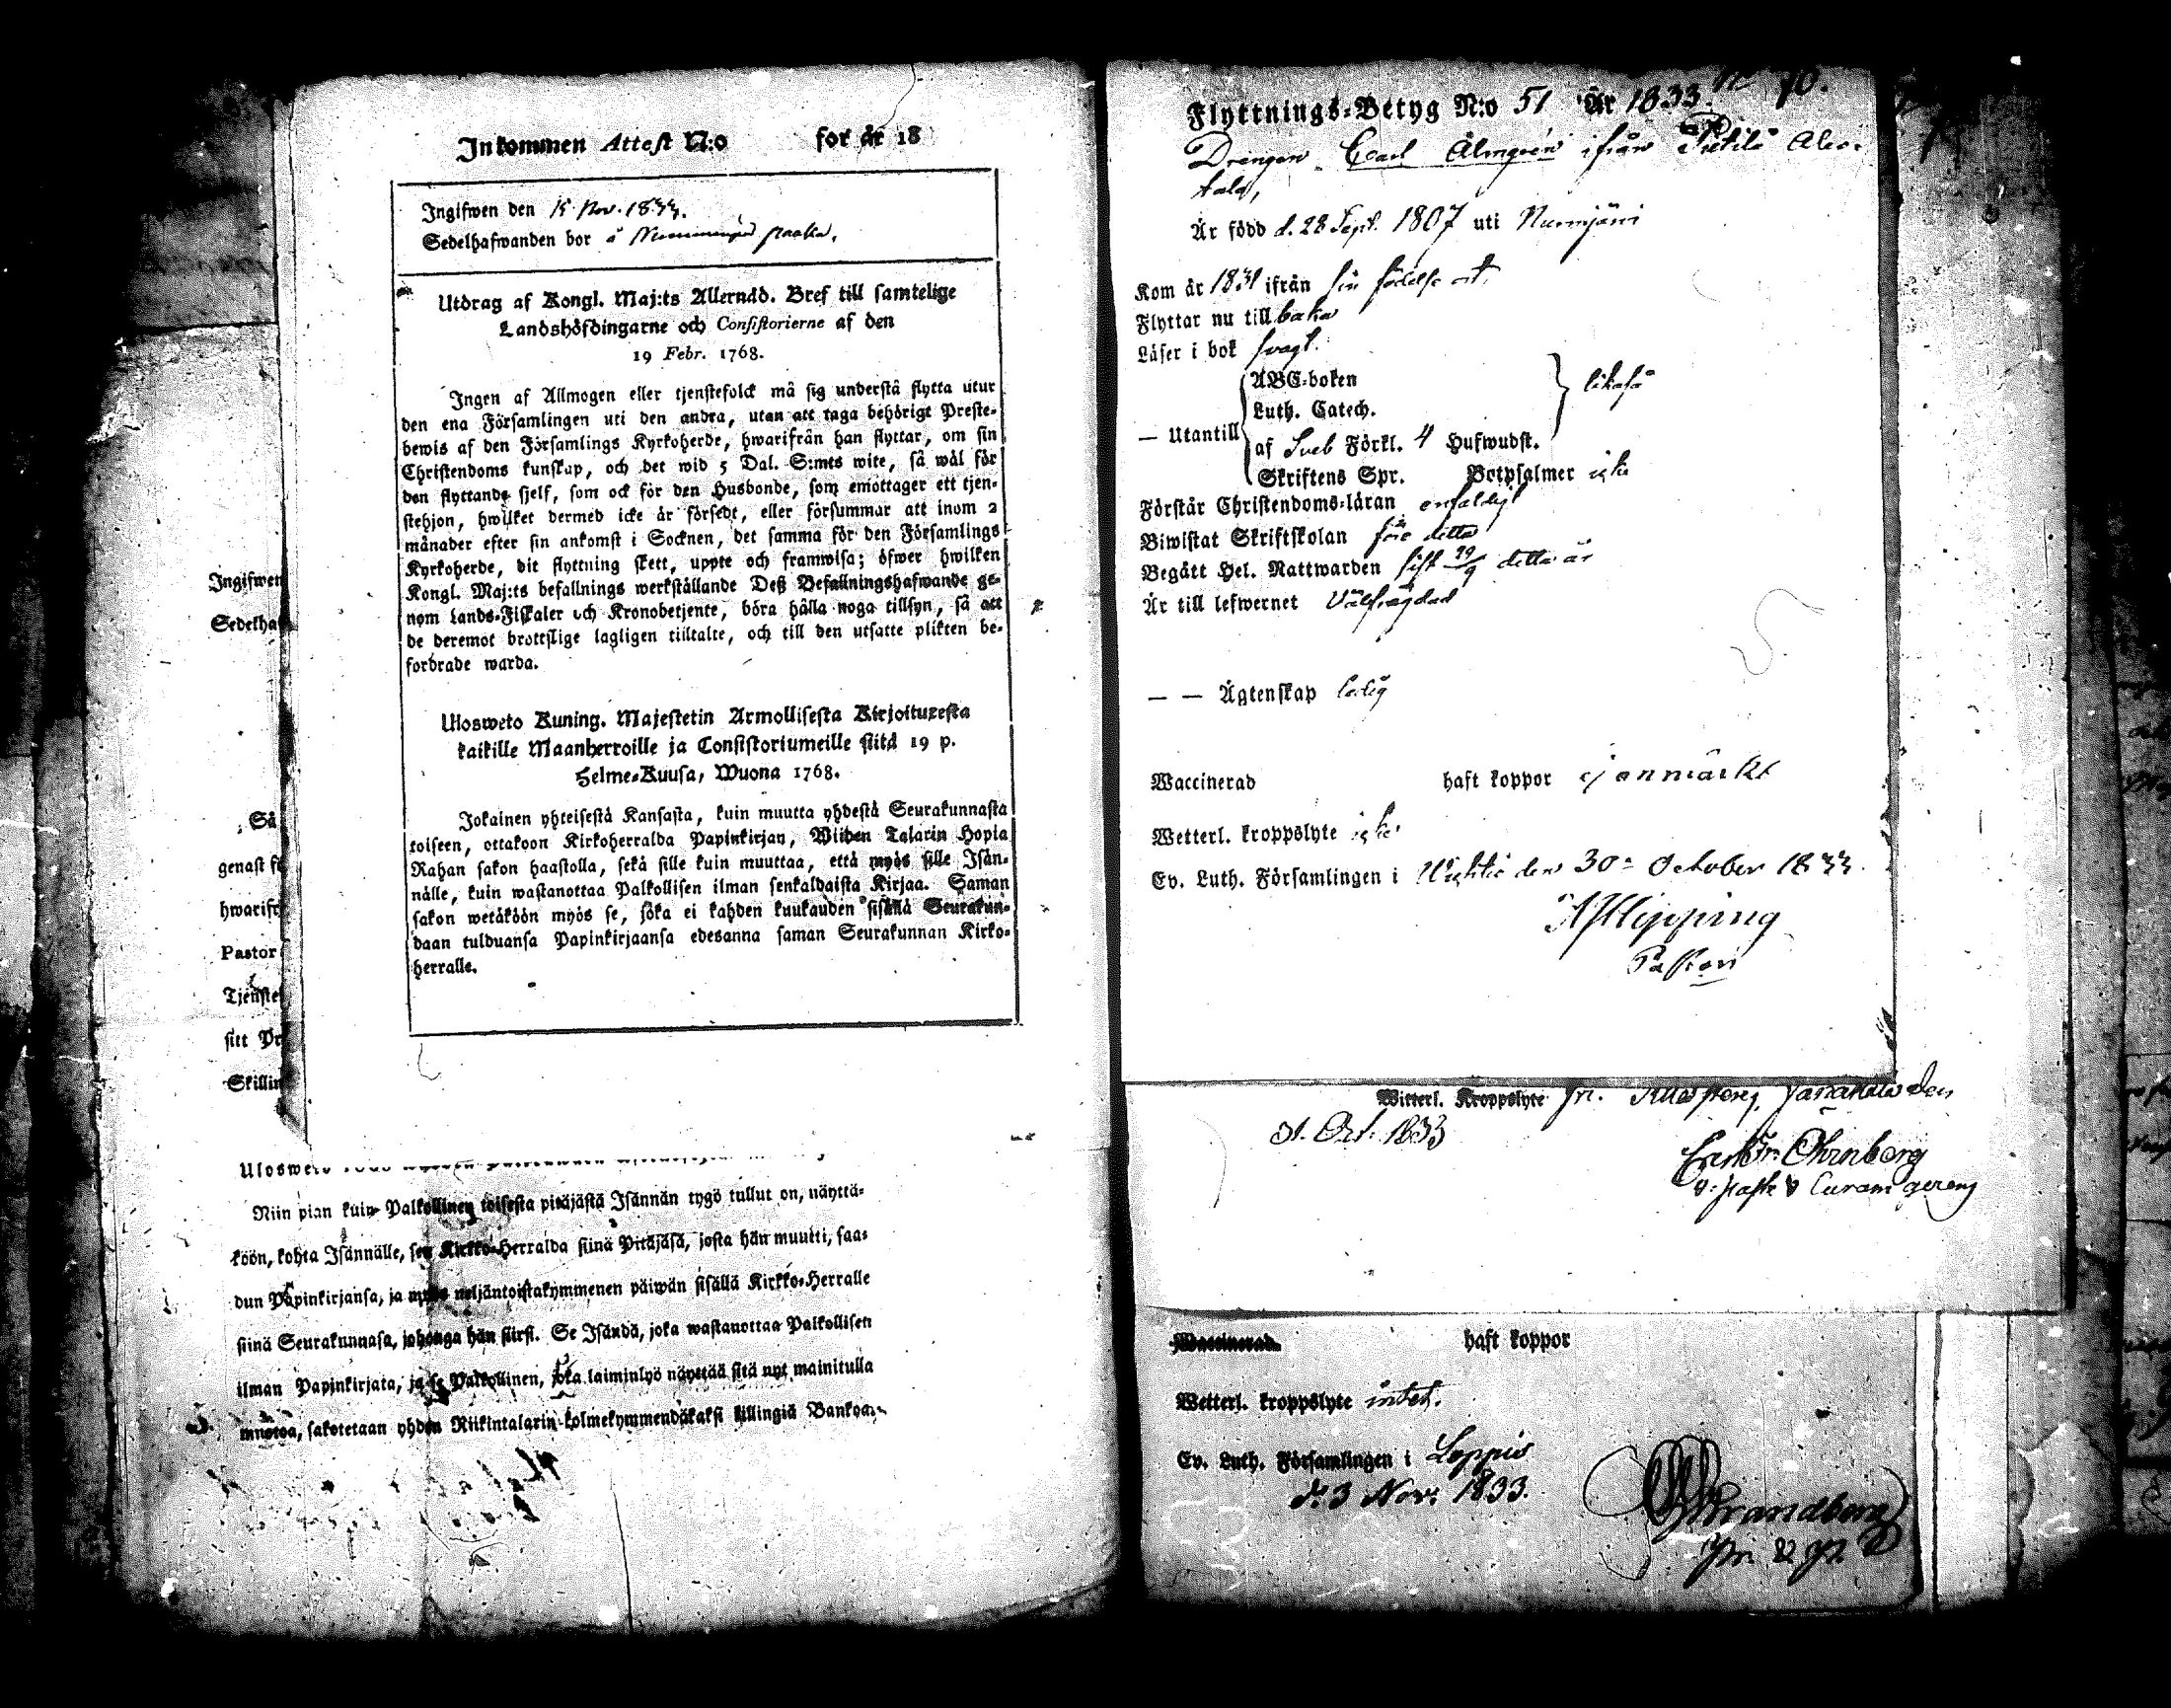 Inkommen Attest N:o för år 18
Ingifwen den 15 Nov. 1833.
Sedelhafwanden bor å
Utdrag af Kongl. Maj:ts Allernåd. Bref till samtelige
Landshöfdingarne och Consistorierne af den
19 Febr. 1768.
Ingen af Allmogen eller tjenstefolck må sig understå flytta utur
den ena Församlingen uti den andra, utan att taga behörigt Preste-
bewis af den Församlings Kyrkoherde, hwarifrån han flyttar, om sin
Christendoms kunskap, och det wid 5 Dal. S:mts wite, så wål för
den flyttande sjelf, som ock för den Husbonde, som emottager ett tjen-
stehjon, hwilket dermed icke är försedt, eller försummar att inom 2
månader efter sin ankomst i Socknen, det samma för den Församlings
Kyrkoherde, dit flyttning skett, uppte och framwisa; öfwer hwilken
Kongl. Maj:ts befallnings werkställande Deß Befallningshafwande ge-
nom Lands-Fiskaler och Kronobetjente, böra hålla noga tillsyn, så att
de deremot brottslige lagligen tilltalte, och till den utsatte plikten be-
fordrade warda.
Ulosweto Kuning. Majestetin Armollisesta Kirjoituxesta
kaikille Maanherroille ja Consistoriumeille siitä 19 p.
Helme-Kuusa, Wuona 1768.
Jokainen yhteisestä Kansasta, kuin muutta yhdestä Seurakunnasta
toiseen, ottakoon Kirkoherralda Papinkirjan, Wiiden Talarin Hopia
Rahan sakon haastolla, sekä sille kuin muuttaa, että myös sille Isän-
nälle, kuin wastanottaa Palkollisen ilman senkaldaista Kirjaa. Saman
sakon wetäköön myös se, joka ei kahden kuukauden sisällä Seurakun-
daan tulduansa Papinkirjaansa edesanna saman Seurakunnan Kirko-
herralle.
Ingifwen
Sedelha
Så
genast
hwarifr
Pastor
Tjenste
sitt Pr
Skillin
Ulosweto
Niin pian kuin Palkollinen toisesta pitäjästä Isännän tygö tullut on, näyttä-
köön, kohta Isännälle, sen Kirkko-Herralda siinä Pitäjäsä, josta hän muutti, saa-
dun Papinkirjansa, ja myös neljäntoistakymmenen päiwän sisällä Kirkko-Herralle
siinä Seurakunnasa, johonga hän siirsi. Se Isändä, joka wastanottaa Palkollisen
ilman Papinkirjata, ja se Palkollinen, joka laiminlyö näyttää sitä nyt mainitulla
muotoa, sakotetaan yhden Riikintalarin kolmekymmendäkaksi killingiä Bankoa
Flyttnings-Betyg N:o 51 År 1833. 70.
Drengen Carl Almgrén ifrån
tala,
Är född d. 28 Sept. 1807 uti Nurmjärvi
Kom år 1831 ifrån sin födelse ort
Flyttar nu tillbaka
Läser i bok svagt.
Utantill ABC-boken
Luth. Catech. likaså
af Sveb Förkl. 4 Hufwudst.
Skriftens Spr. Botpsalmer icke
Förstår Christendoms-läran enfaldigt
Biwistat Skriftskolan före detta
Begått Hel. Nattwarden sist 29/9 detta år
Är till lefwernet Välfrägdad
— — Ägtenskap ledig
Waccinerad haft koppor
Wetterl. kroppslyte icke
Ev. Luth. Församlingen i Wichtis den 30 October 1833.
Pastor
Witterl. Kroppslyte den
31. Oct. 1833
Ohrnberg
Waccinerad haft koppor
Wetterl. kroppslyte intet.
Ev. Luth. Församlingen i Loppis
d. 3 Nov. 1833.